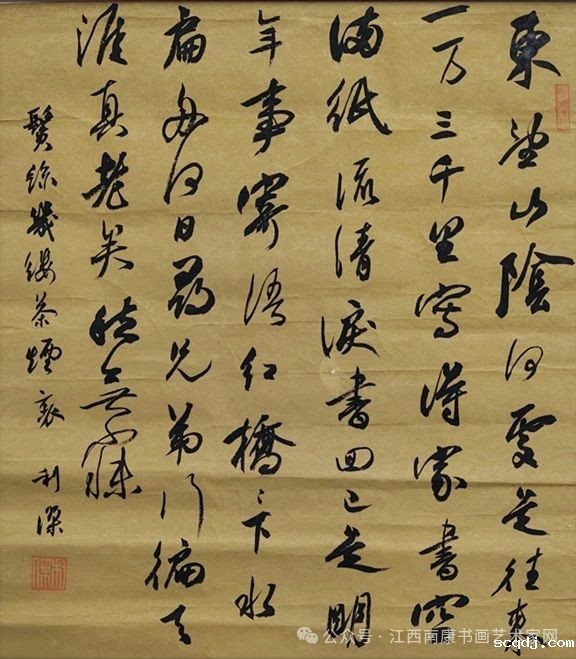 東望山陰何處是往來
一万三千里寫得家書空
滿紙流清淚書回已是明
年事寄語紅橋〻下水
扁舟何日尋兄弟行徧天
涯真老矣愁無寐
鬢絲幾縷茶煙裏 利
公众号 · 江西南康书画艺术家网
scqdj.com